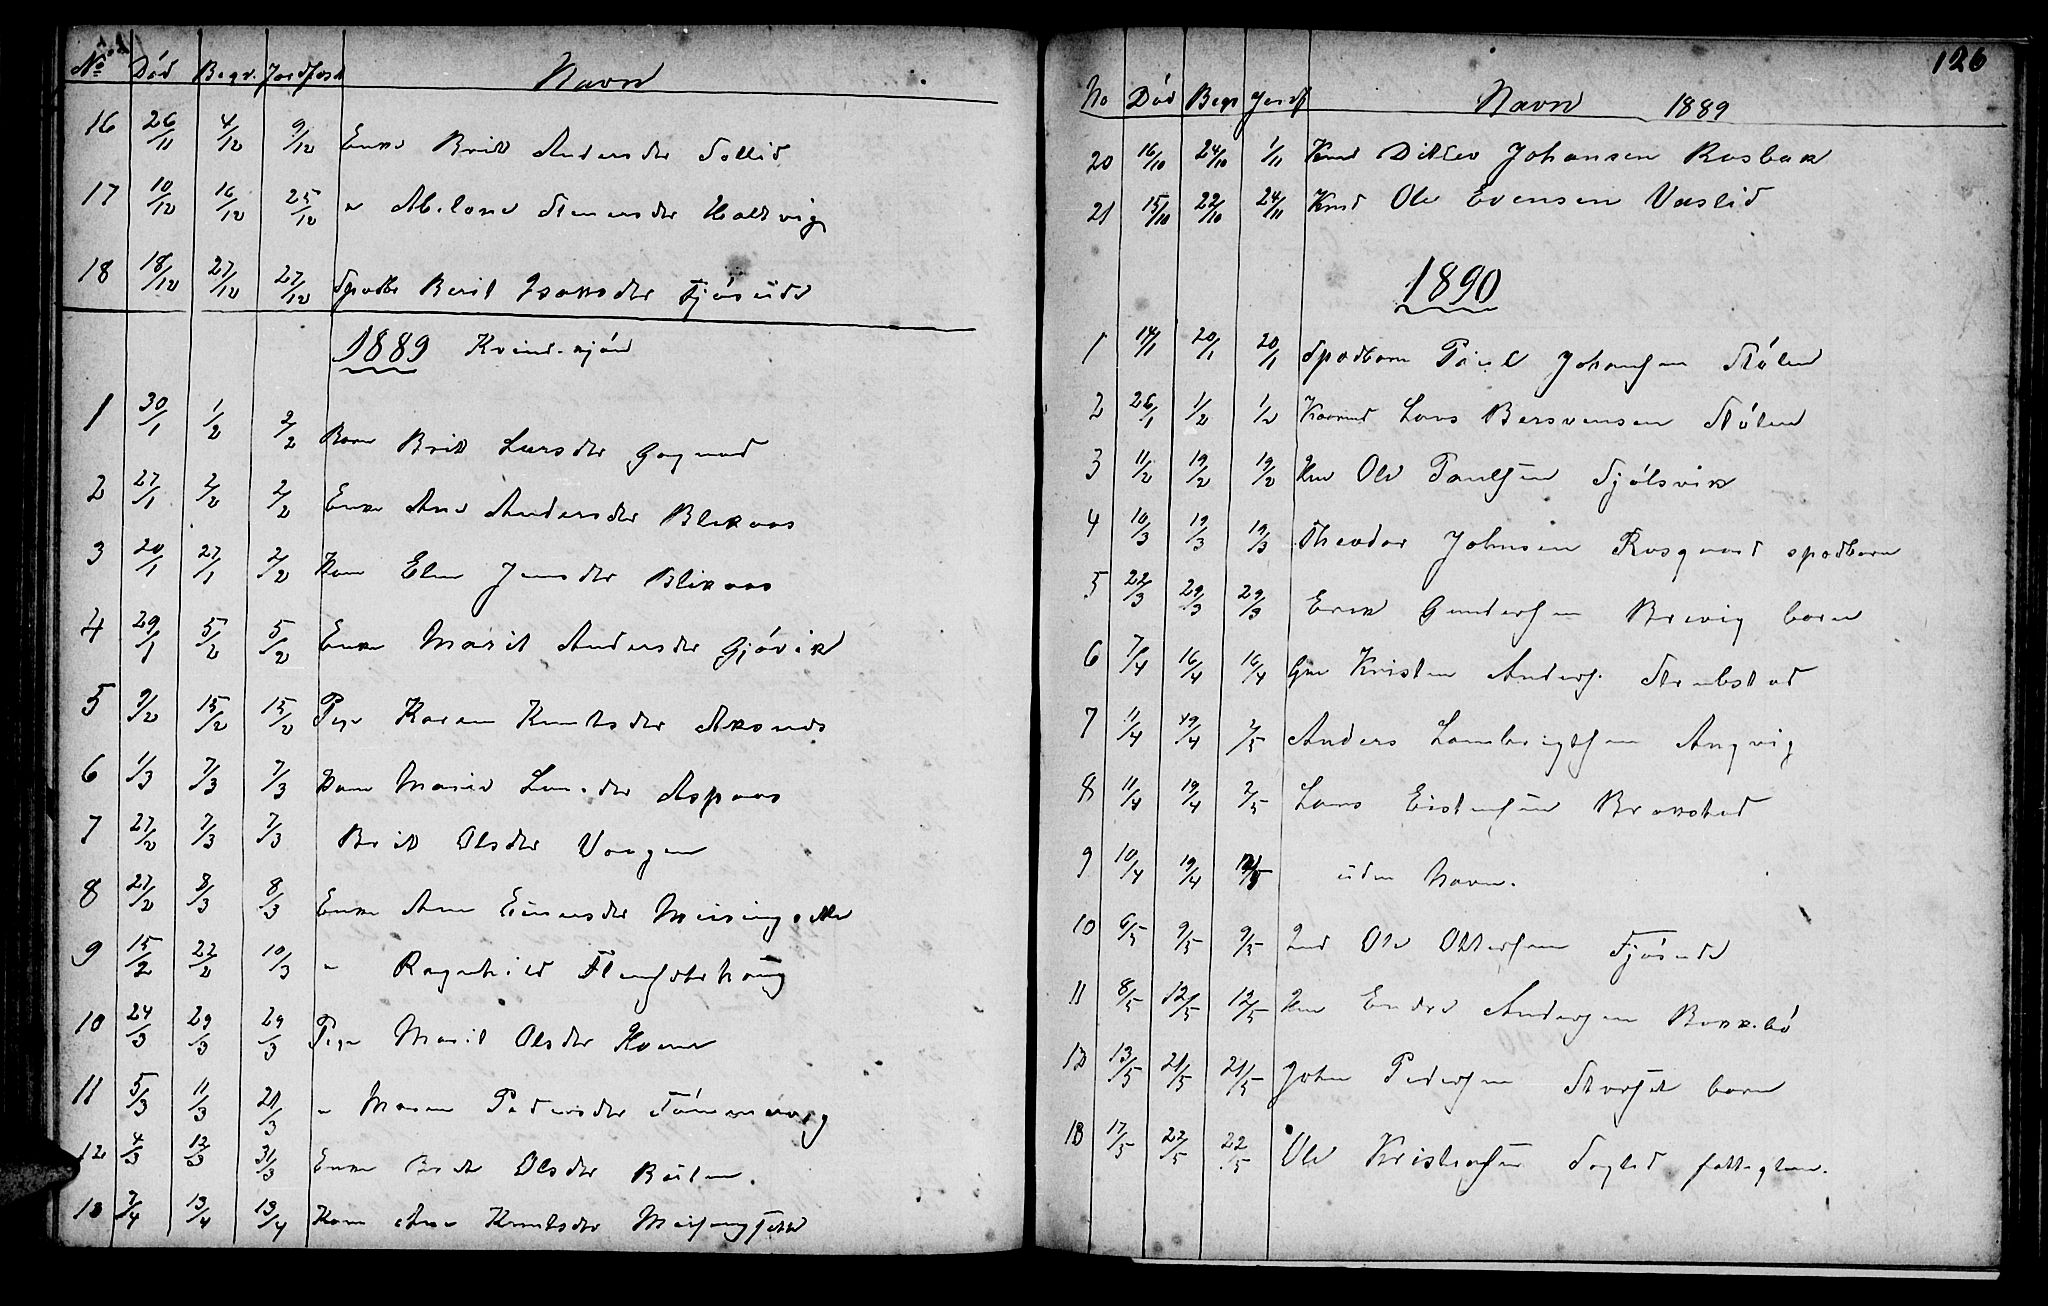 No Død Begr. Jordfæst Navn
16 26/11 4/12 9/12 Enke Britt Andersdtr Sollid
17 10/12 16/12 25/12 " Andersdtr Holtvig
18 18/12 27/12 27/12 Spædb Berit Fjøseide
1889 Kvindekjøn
1 30/1 1/2 2/2 Barn Britt Larsdtr Gagnad
2 27/1 2/2 2/2 Enke Ane Andersdtr Blikaas
3 20/1 27/1 2/2 Kone Elen Jensdtr Blikaas
4 29/1 5/2 5/2 Enke Marit Andersdtr Gjøvik
5 9/2 15/2 15/2 Pige Karen Knutsdtr Aksnes
6 1/3 7/3 7/3 Kone Marie Larsdtr Aspaas
7 27/2 7/3 7/3 Britt Olsdtr Vaagen
8 27/2 8/3 8/3 Enke Ane Einarsdtr Meisingsetr
9 15/2 22/2 10/3 " Ragnhild
10 24/3 29/3 29/3 Pige Marit Olsdtr
11 5/3 11/3 21/3 " Maren Pedersdtr Tømmervg
12 4/3 12/3 31/3 Enke Brit Olsdtr
13 7/4 13/4 13/4 Kone Ane Knutsdtr Meisingsetr
126
No Død Begr Jordf Navn 1889
20 16/10 24/10 1/11 Kmd Ditlev Johansen Rosbak
21 15/10 22/10 24/11 Kmd Ole Evensen Vaslid
1890
1 14/1 20/1 20/1 Spædbarn Paul Johansen Stølen
2 26/1 1/2 1/2 Lars Bersvensen Stølen
3 11/2 19/2 19/2 Km Ole Paulsen Sjølsvik
4 10/3 19/3 19/3 Theodor Johnsen spædbarn
5 22/3 29/3 29/3 Erik Gundersen Brevig barn
6 7/4 16/4 16/4 Gm Kristen Anders.
7 11/4 19/4 2/5 Anders Lambrigtsen Angvig
8 11/4 19/4 2/5 Lars Eistensen
9 10/4 19/4 uden Navn.
10 6/5 9/5 9/5 Ind Ole Ottersen Fjøseide
11 8/5 12/5 12/5 Km Endre Andersen
12 13/5 21/5 21/5 John Pedersen Storset barn
13 17/5 22/5 22/5 Ole Kristofsen Saglid fattiglem.